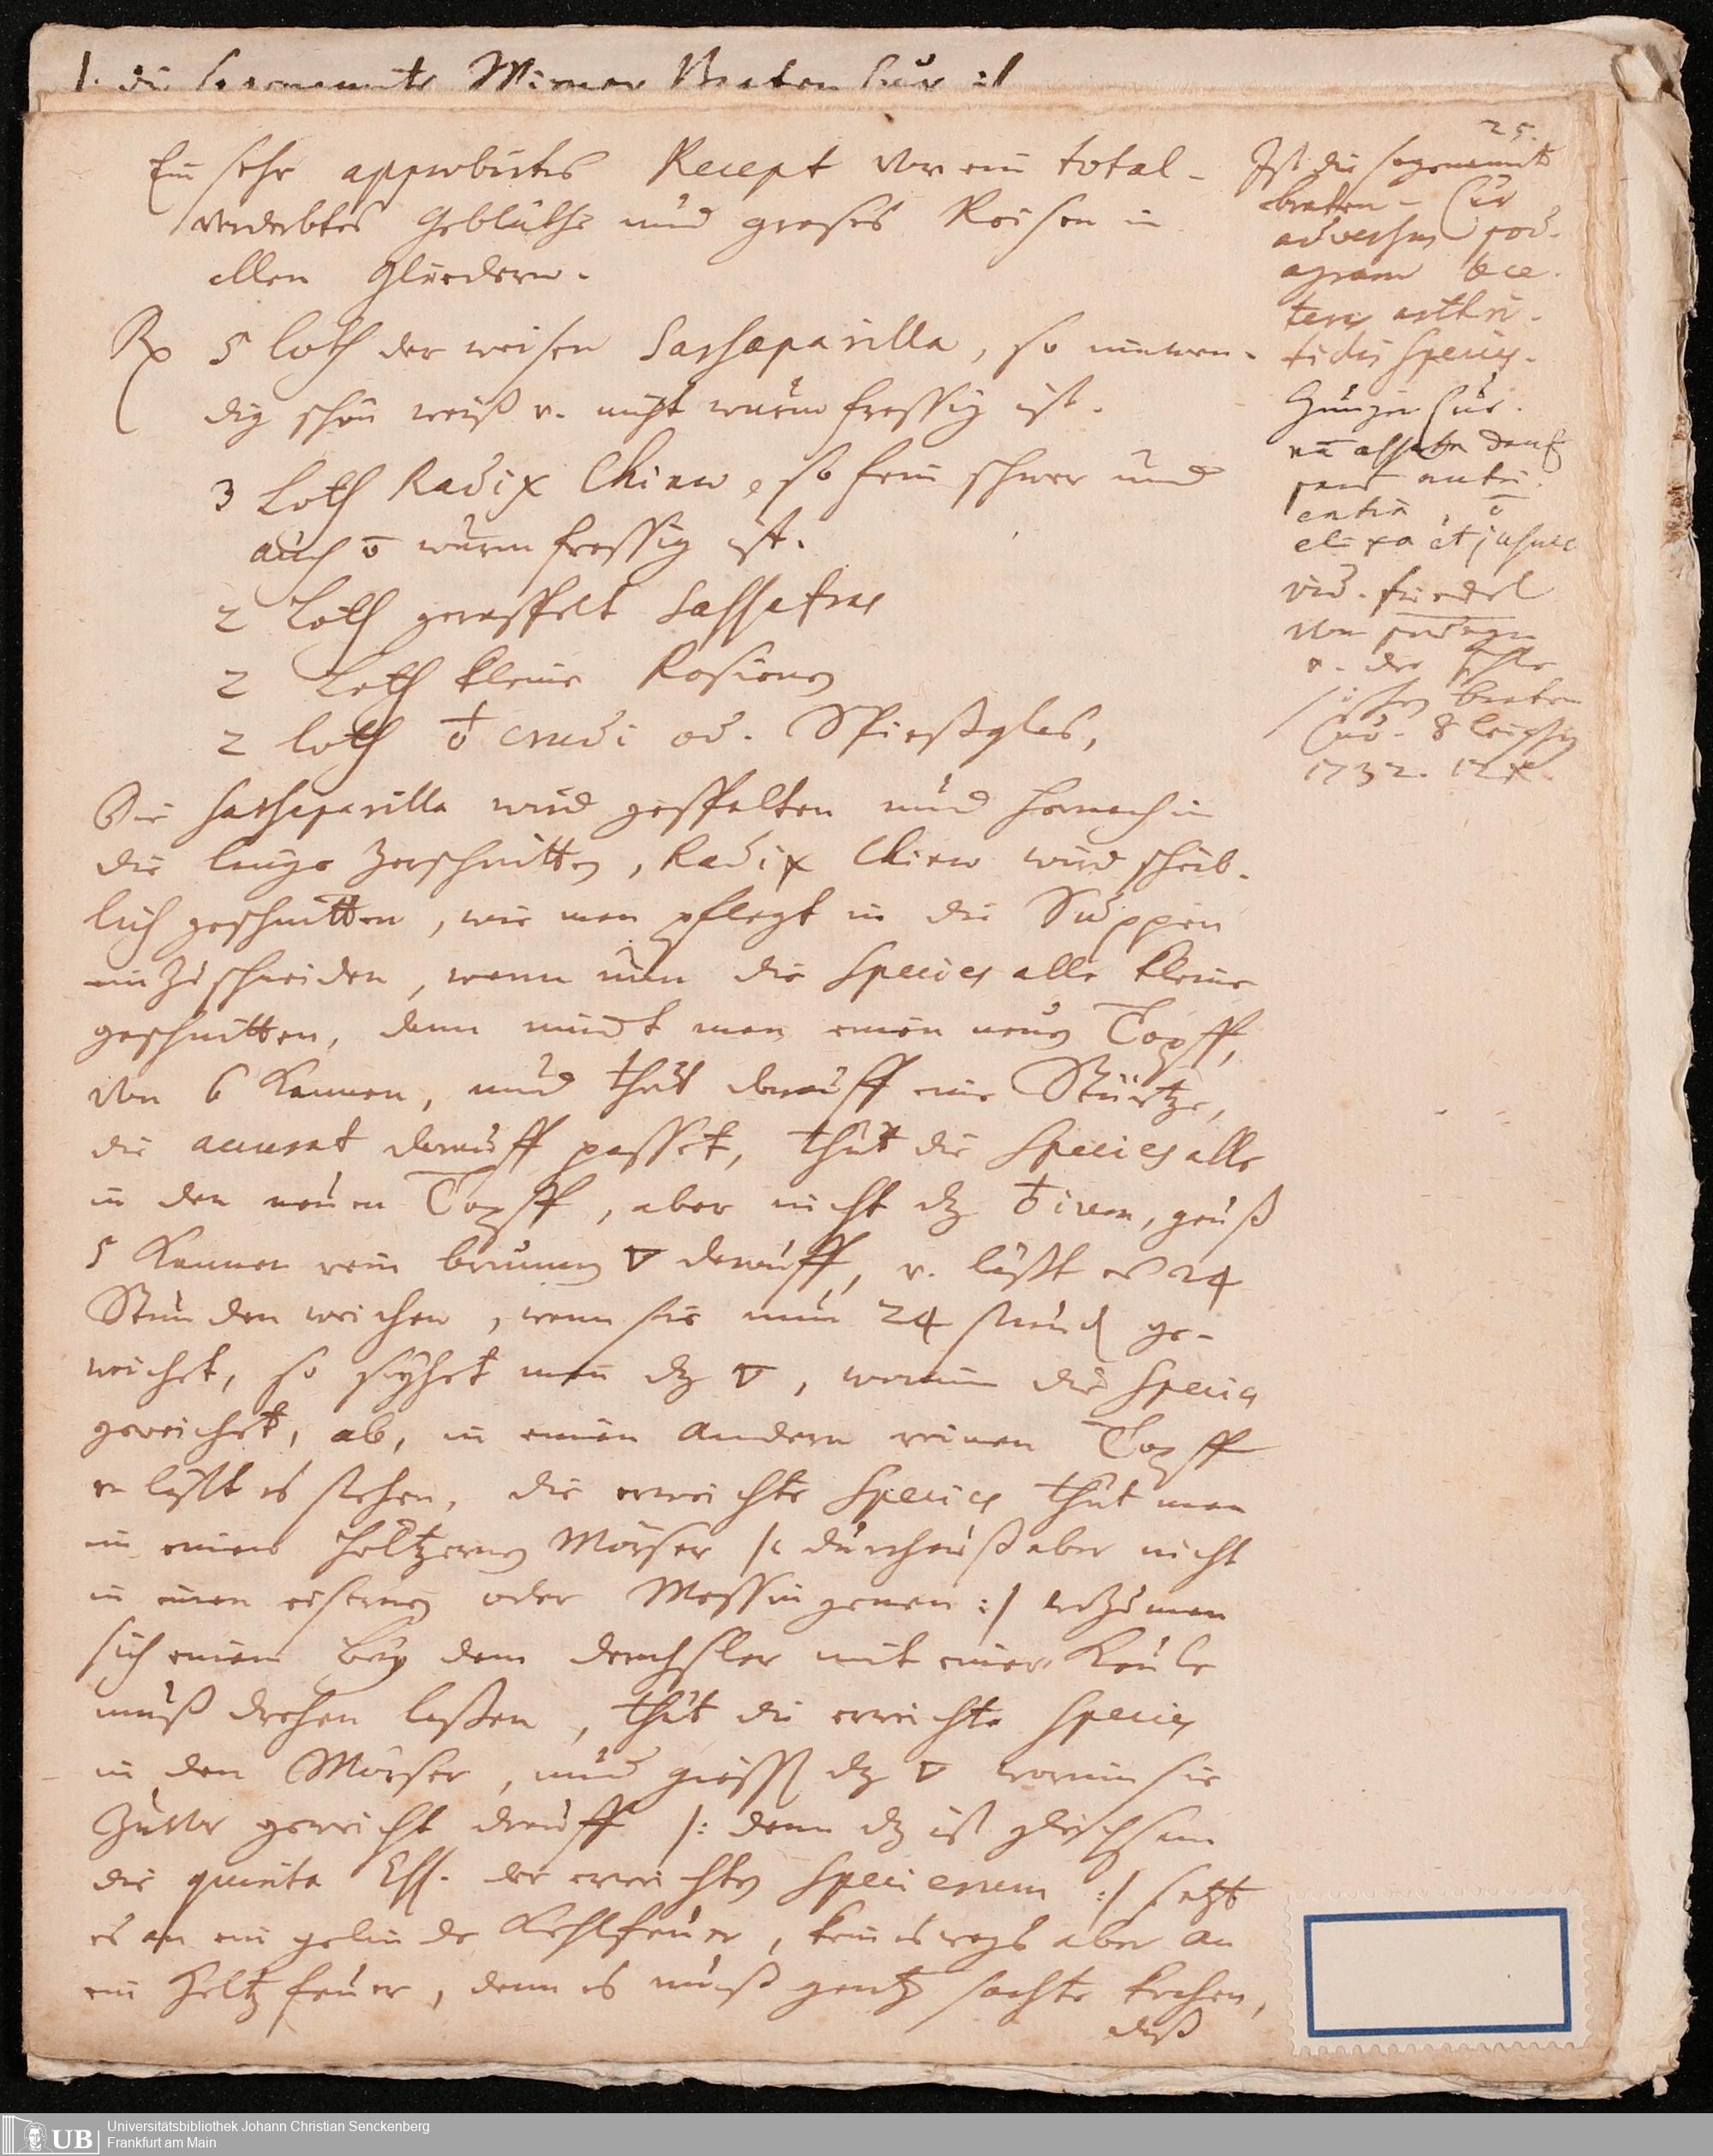 /. die sogenannte Wiener Braten Cur :/
25.
Ein sehr approbirtes Recept vor ein total-
verderbtes Geblüthe und groses Reisen in
allen Gliedern.
Rx 5 loth der weisen Sassaparilla, so inwen-
dig schön weiß u. nicht wurm fressig ist.
3 Loth Radix Chinae, so fein schwer und
auch ō wurm fressig ist.
2 Loth geraspelt Sassafras
2 Loth kleine Rosienen
2 loth ♁ crudi od. Spießglas,
Die Sassaparilla wird gespalten und hernach in
die lenge zerschnitten, Radix Chinae wird scheib-
lich geschnitten, wie man pflegt in die Suppen
einzuschneiden, wenn nun die Species alle kleine
geschnitten, dann nimbt man einen neuen Topff,
von 6 Kannen, und thut darauff eine Stürtze,
die accurat darauff passet, thut die Species alle
in den neuen Topff, aber nicht dz ♁, geuß
5 Kannen rein brunnen ▽ darauff, u. läßt es 24
Stunden weichen, wenn sie nun 24 stund ge-
weichet, so seyhet man dz ▽, worinn die Species
geweichet, ab, in einen andern reinen Topff
u. läßt es stehen, die erweichte Species thut man
in einen höltzernen Mörser /: durchauß aber nicht
in einen eisernen oder Messingenen :/ wozu man
sich einen bey dem drechsler mit einer Keule
muß drehen laßen, thut die erweichte Species
in den Mörser, und giest dz ▽ worinn sie
zuvor geweicht drauff /: denn dz ist gleichsam
die quinta Ess. der erweichten Specierum :/ setzt
es an ein gelinde Kohlfeuer, keinesweges aber an
ein Holtz feuer, denn es muß gantz sachte kochen,
daß
Ist die sogenannte
braten-Cur
adversus pod-
agram &
arthri-
tidis species.
vid. friedel
von podagra
u. der
braten
Cur. 8 leipzig
1732.
UB
Universitätsbibliothek Johann Christian Senckenberg
Frankfurt am Main